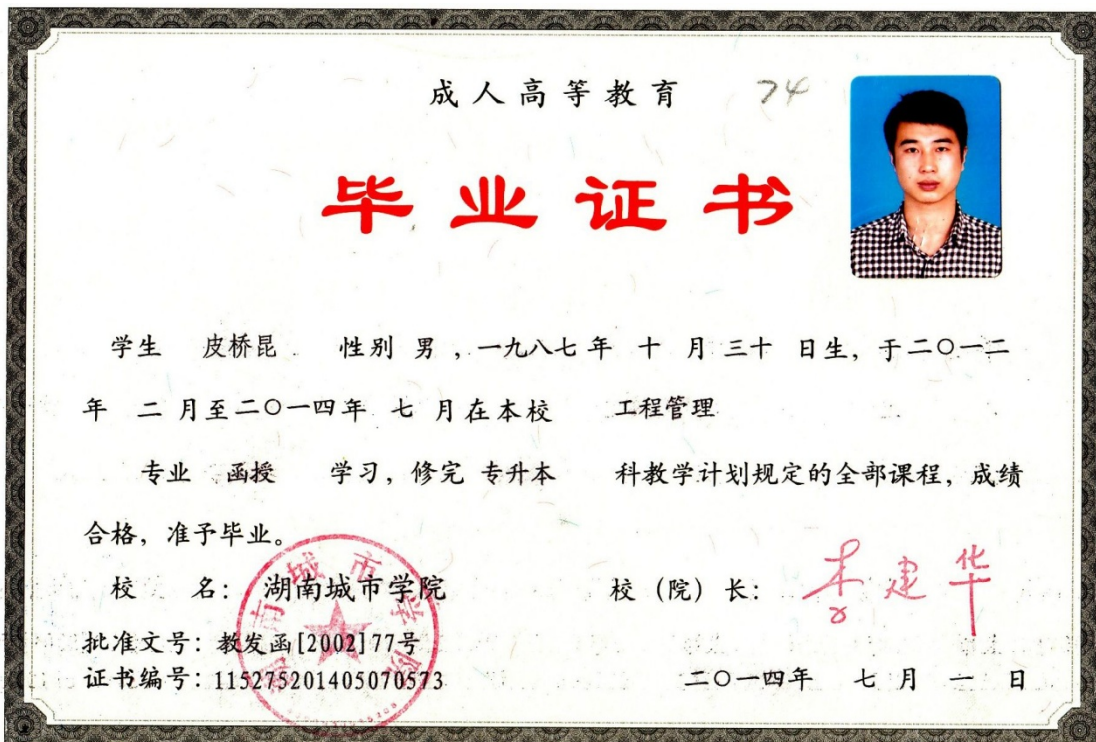 成人高等教育 74
毕业证书
学生 皮桥昆 性别 男 ,一九八七年 十 月 三十 日生, 于二〇一二
年 二 月至二〇一四年 七 月在本校 工程管理
专业 函授 学习, 修完 专升本 科教学计划规定的全部课程, 成绩
合格, 准予毕业。
校 名: 湖南城市学院 校 (院) 长: 李建华
湖南城市学院
批准文号: 教发函[2002]77号
证书编号: 115275201405070573 二〇一四年 七 月 一 日